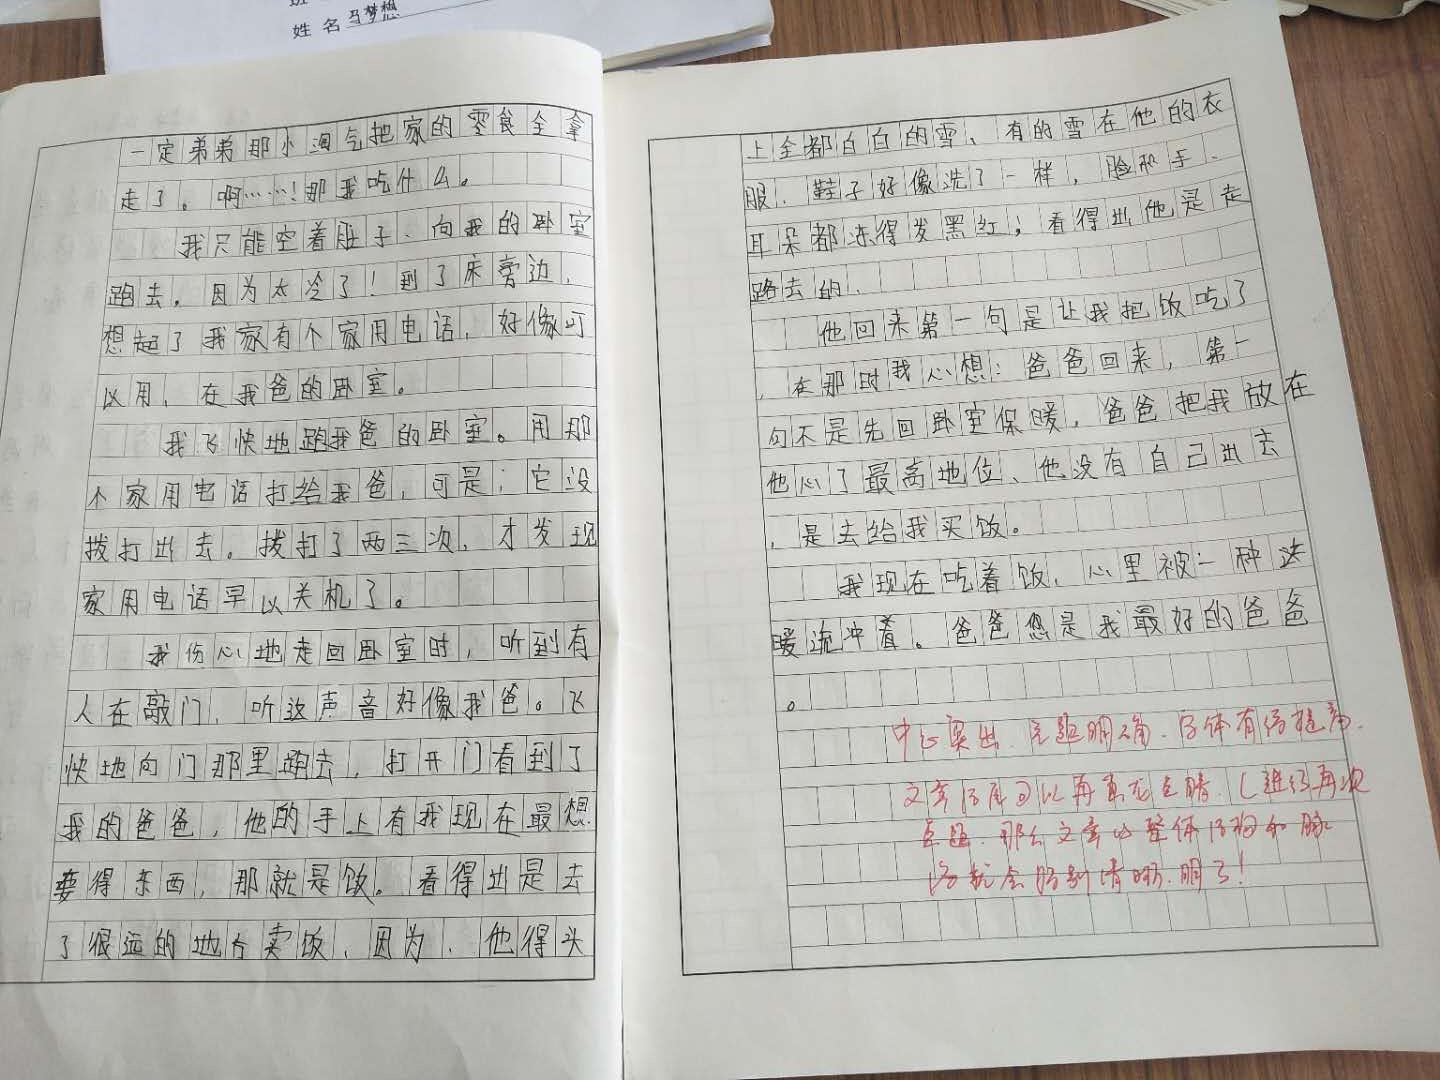 姓名 马梦想
一定弟弟那小淘气把家的零食全拿
走了。啊……!那我吃什么。
我只能空着肚子、向我的卧室
跑去。因为太冷了!到了床旁边,
想起了我家有个家用电话,好像可
以用,在我爸的卧室。
我飞快地跑我爸的卧室。用那
个家用电话打给我爸,可是;它没
拨打出去。拨打了两三次,才发现
家用电话早以关机了。
我伤心地走回卧室时,听到有
人在敲门,听这声音好像我爸。飞
快地向门那里跑去,打开门看到了
我的爸爸,他的手上有我现在最想
要得东西,那就是饭。看得出是去
了很远的地方卖饭,因为,他得头
上全都白白的雪、有的雪在他的衣
服、鞋子好像洗了一样,脸和手、
耳朵都冻得发黑红;看得出他是走
路去的、
他回来第一句是让我把饭吃了
,在那时我心想:爸爸回来,第一
句不是先回卧室保暖,爸爸把我放在
他心了最高地位、他没有自己出去
,是去给我买饭。
我现在吃着饭、心里被一种
暖流冲着。爸爸您是我最好的爸爸
。
中心突出、主题明确、字体有待提高。
文章结尾可以再
点题、那么文章的整体结构和脉
络就会特别清晰、明了!